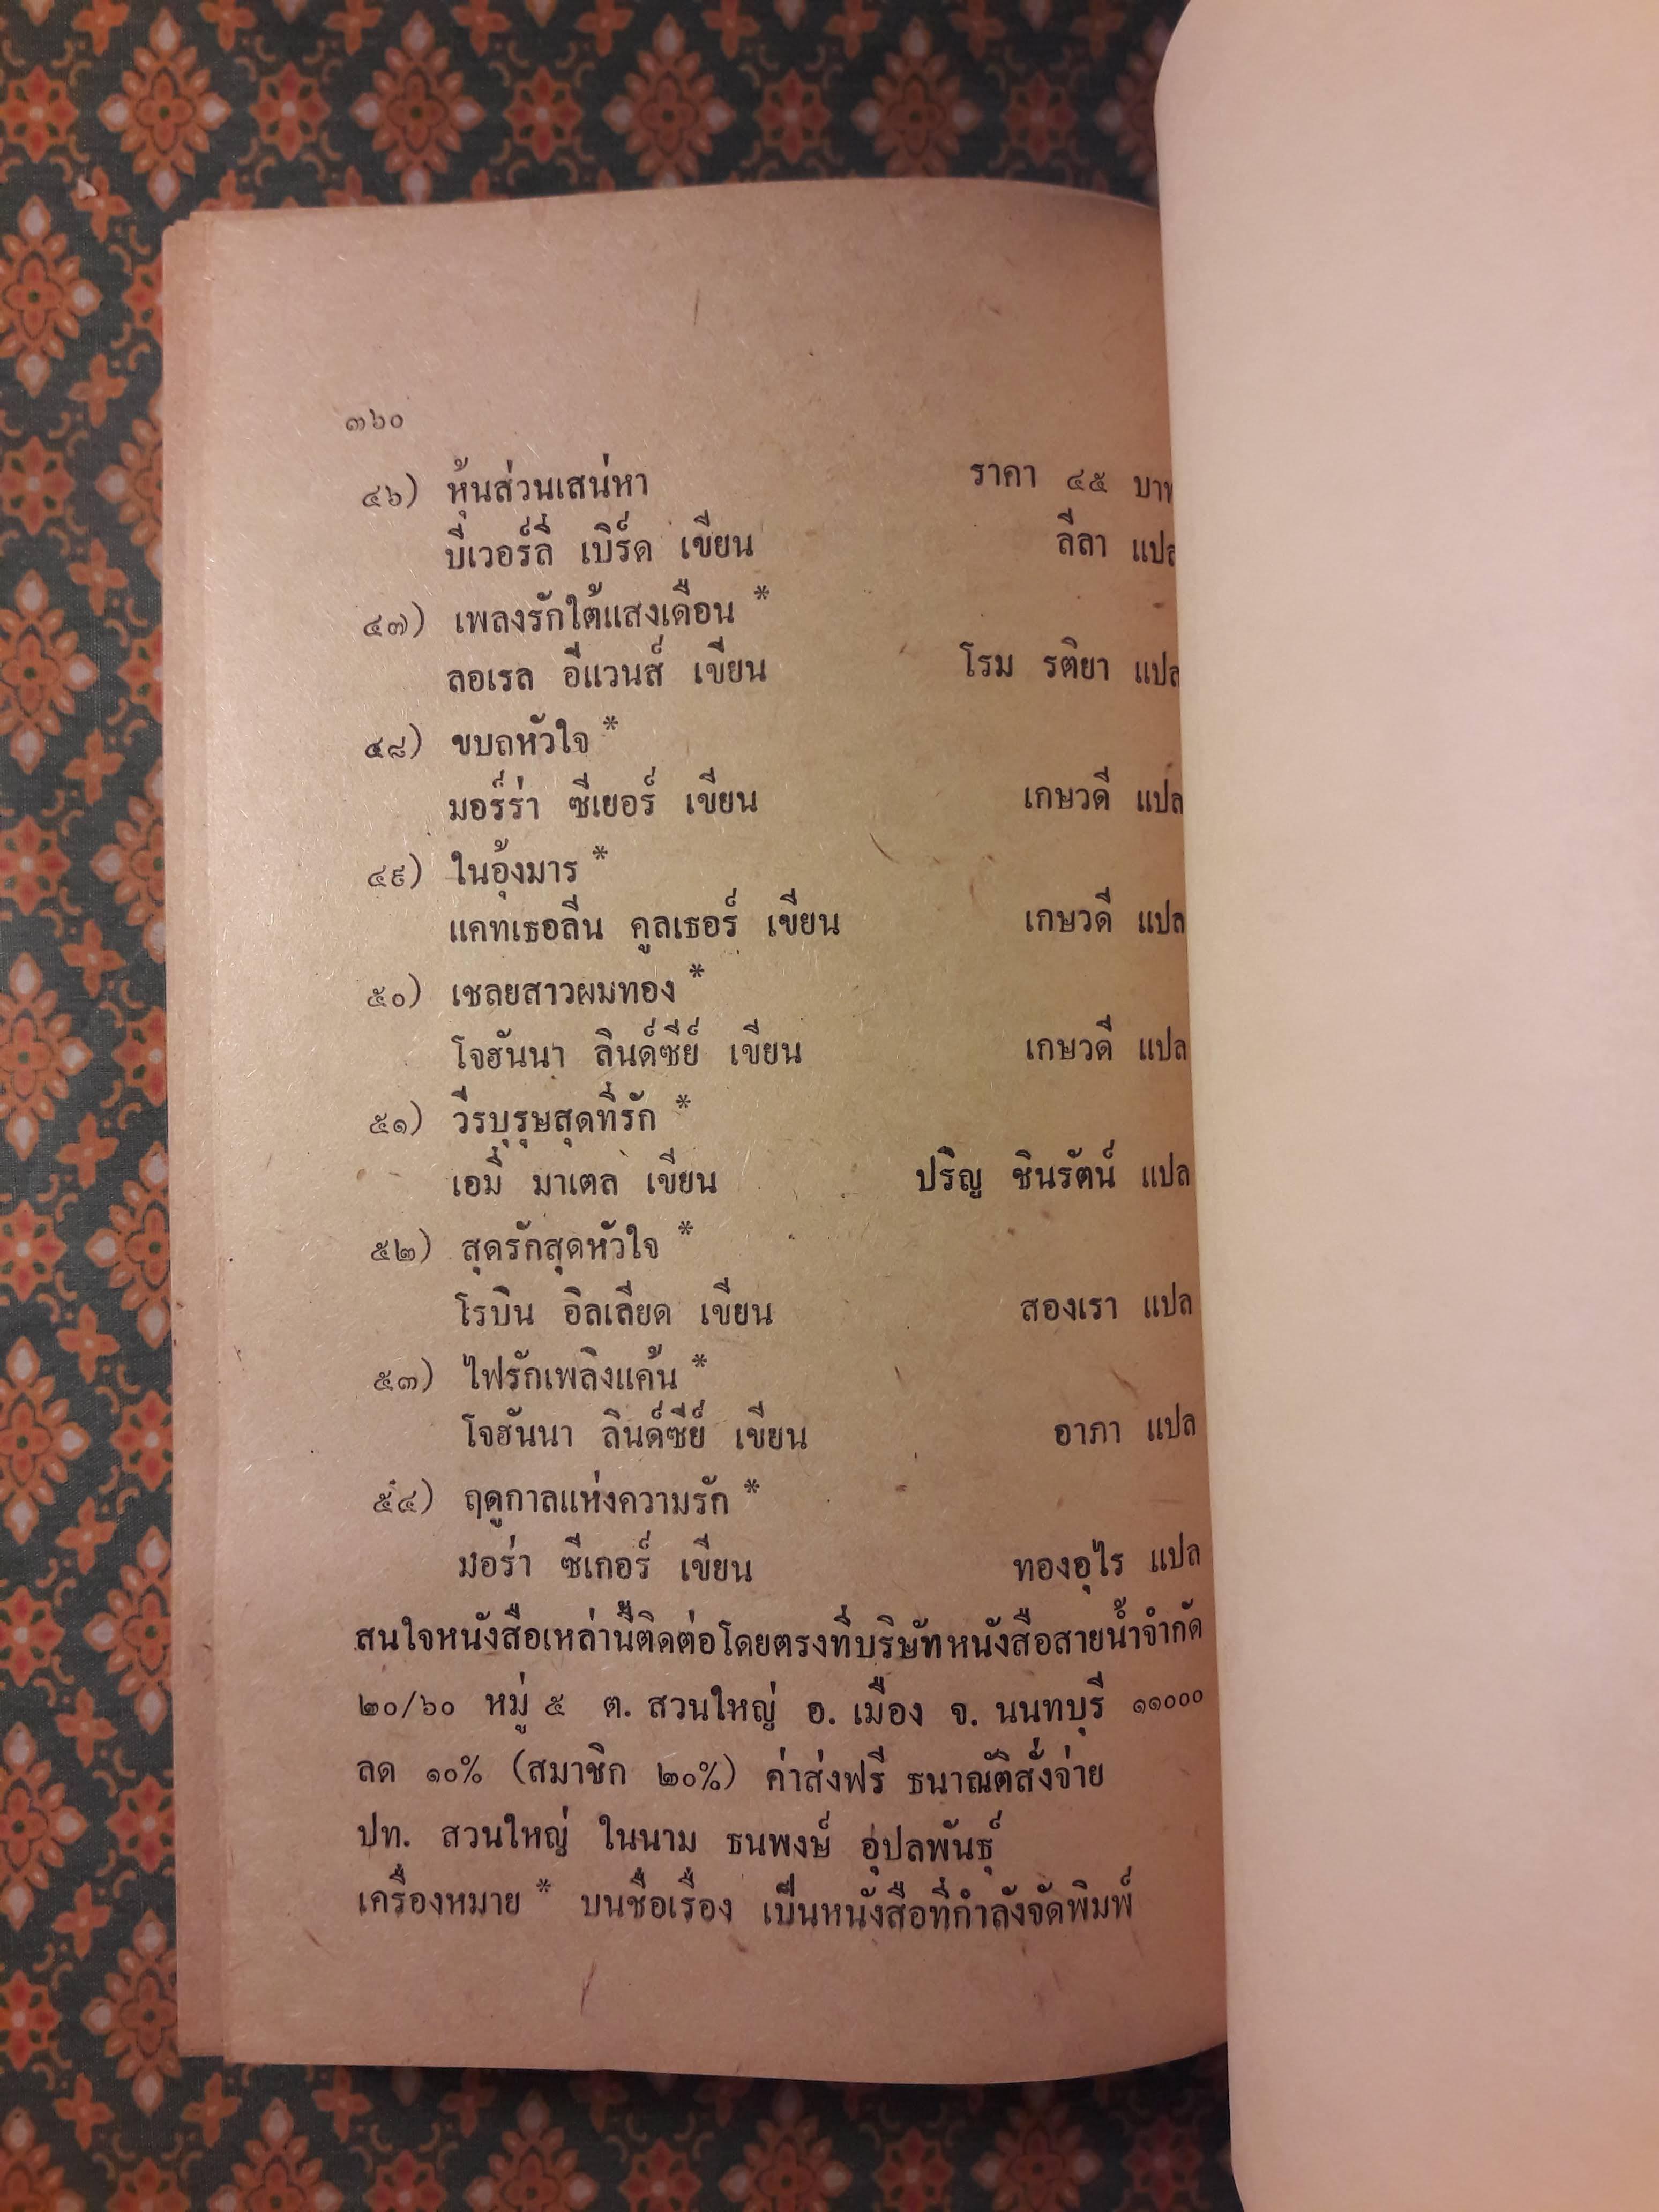 ๓๖๐
๔๖) หุ้นส่วนเสน่หา ราคา ๔๕ บาท
บีเวอร์ลี่ เบิร์ด เขียน ลีลา แปล
๔๗) เพลงรักใต้แสงเดือน *
ลอเรล อีแวนส์ เขียน โรม รติยา แปล
๔๘) ขบถหัวใจ *
มอร์ร่า ซีเยอร์ เขียน เกษวดี แปล
๔๙) ในอุ้งมาร *
แคทเธอลีน คูลเธอร์ เขียน เกษวดี แปล
๕๐) เชลยสาวผมทอง *
โจฮันนา ลินด์ซีย์ เขียน เกษวดี แปล
๕๑) วีรบุรุษสุดที่รัก *
เอมี่ มาเตล เขียน ปริญ ชินรัตน์ แปล
๕๒) สุดรักสุดหัวใจ *
โรบิน อิลเลียด เขียน สองเรา แปล
๕๓) ไฟรักเพลิงแค้น *
โจฮันนา ลินด์ซีย์ เขียน อาภา แปล
๕๔) ฤดูกาลแห่งความรัก *
มอร่า ซีเกอร์ เขียน ทองอุไร แปล
สนใจหนังสือเหล่านี้ติดต่อโดยตรงที่บริษัทหนังสือสายน้ำจำกัด
๒๐/๖๐ หมู่ ๕ ต. สวนใหญ่ อ. เมือง จ. นนทบุรี ๑๑๐๐๐
ลด ๑๐% (สมาชิก ๒๐%) ค่าส่งฟรี ธนาณัติสั่งจ่าย
ปท. สวนใหญ่ ในนาม ธนพงษ์ อุปลพันธุ์
เครื่องหมาย * บนชื่อเรื่อง เป็นหนังสือที่กำลังจัดพิมพ์